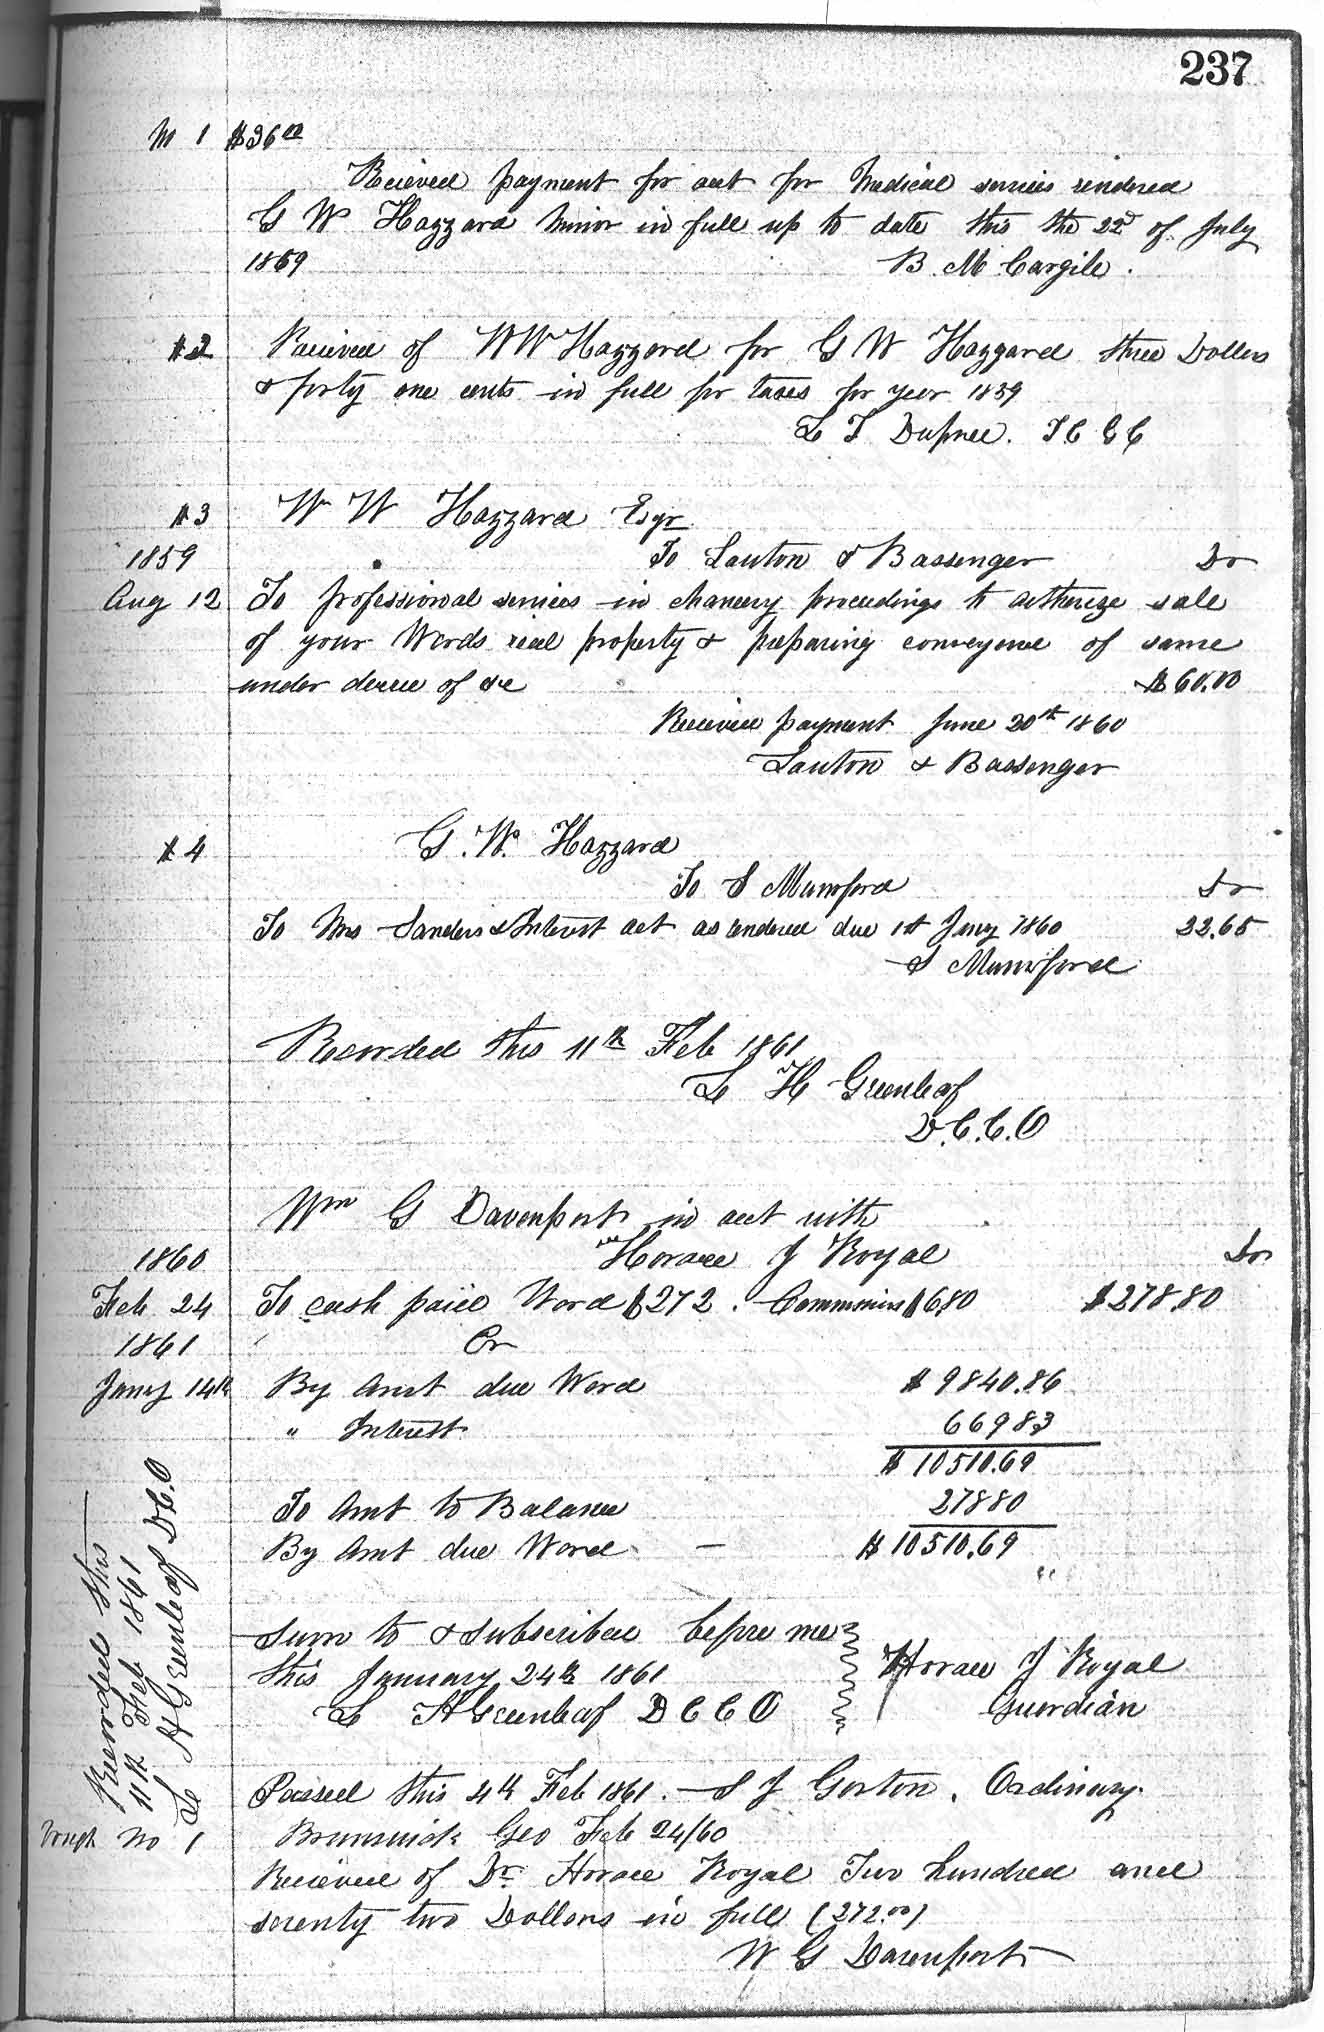 237
No 1 $36.00
Recieved payment for acct for Medical servies rendered
G W Hazzard Minor in full up to date this the 22d of July
1859 B. M. Cargile.
#2 Recieved of W W Hazzard for G W Hazzard three Dollers
& forty one cents in full for taxes for year 1859
L T Dupree. T C G C
#3 W W Hazzard Esqr
1859 To Lauton & Bassenger Dr
Aug 12 To professional servies in chancery proceedings to autherize sale
of your Wards real property & preparing conveyance of same
under decree of &c $60.00
Recieved payment June 20th 1860
Lauton & Bassenger
#4 G. W. Hazzard
To S Mumford Dr
To Mrs Sanders & Interest act as rendered due 1st Jany 1860 22.65
S Mumford
Recorded this 11th Feb 1861
L H Greenleaf
D.C.C.O
Wm G Davenport in acct with
1860 Horace J Royal Dr
Feb 24 To cash paid Ward $272. Commmins $6.80 $278.80
1861 Cr
Jany 14th By Amt due Ward $9840.86
" Interest 66983
$10510.69
To Amt to Balance 27880
By Amt due Ward — $10510.69
Recorded this
11th Feb 1861
L H Greenleaf D.C.O
Sworn to & subscribed before me
this January 24th 1861
L H Greenleaf D C C O
Horace J Royal
Guardian
Passed this 4th Feb 1861. S J Gorton. Ordinary.
Vouch No 1 Brunswick Geo Feb 24/60
Recieved of Dr. Horace Royal Two hundred and
seventy two Dollars in full (272.00)
W G Davenport